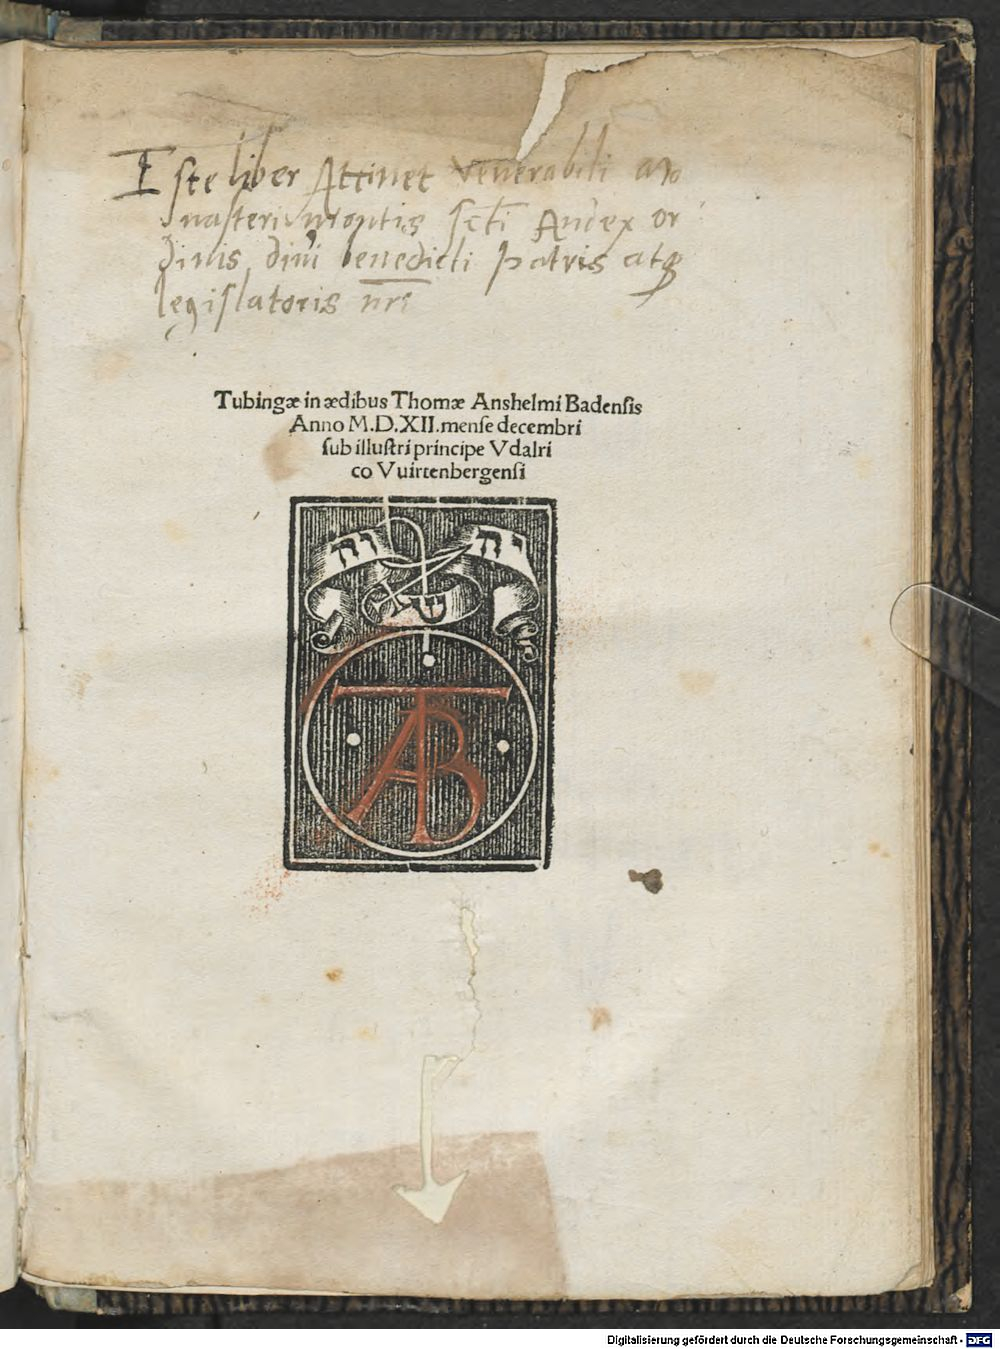 Iste liber Attinet venerabili mo
nasterio montis scti Andex or
dinis divi benedicti patris atq
legislatoris nri
Tubingæ in ædibus Thomæ Anshelmi Badensis
Anno M.D.XII. mense decembri
sub illustri principe Vdalri
co Vuirtenbergensi
יה ש וה
TAB
Digitalisierung gefördert durch die Deutsche Forschungsgemeinschaft - DFG